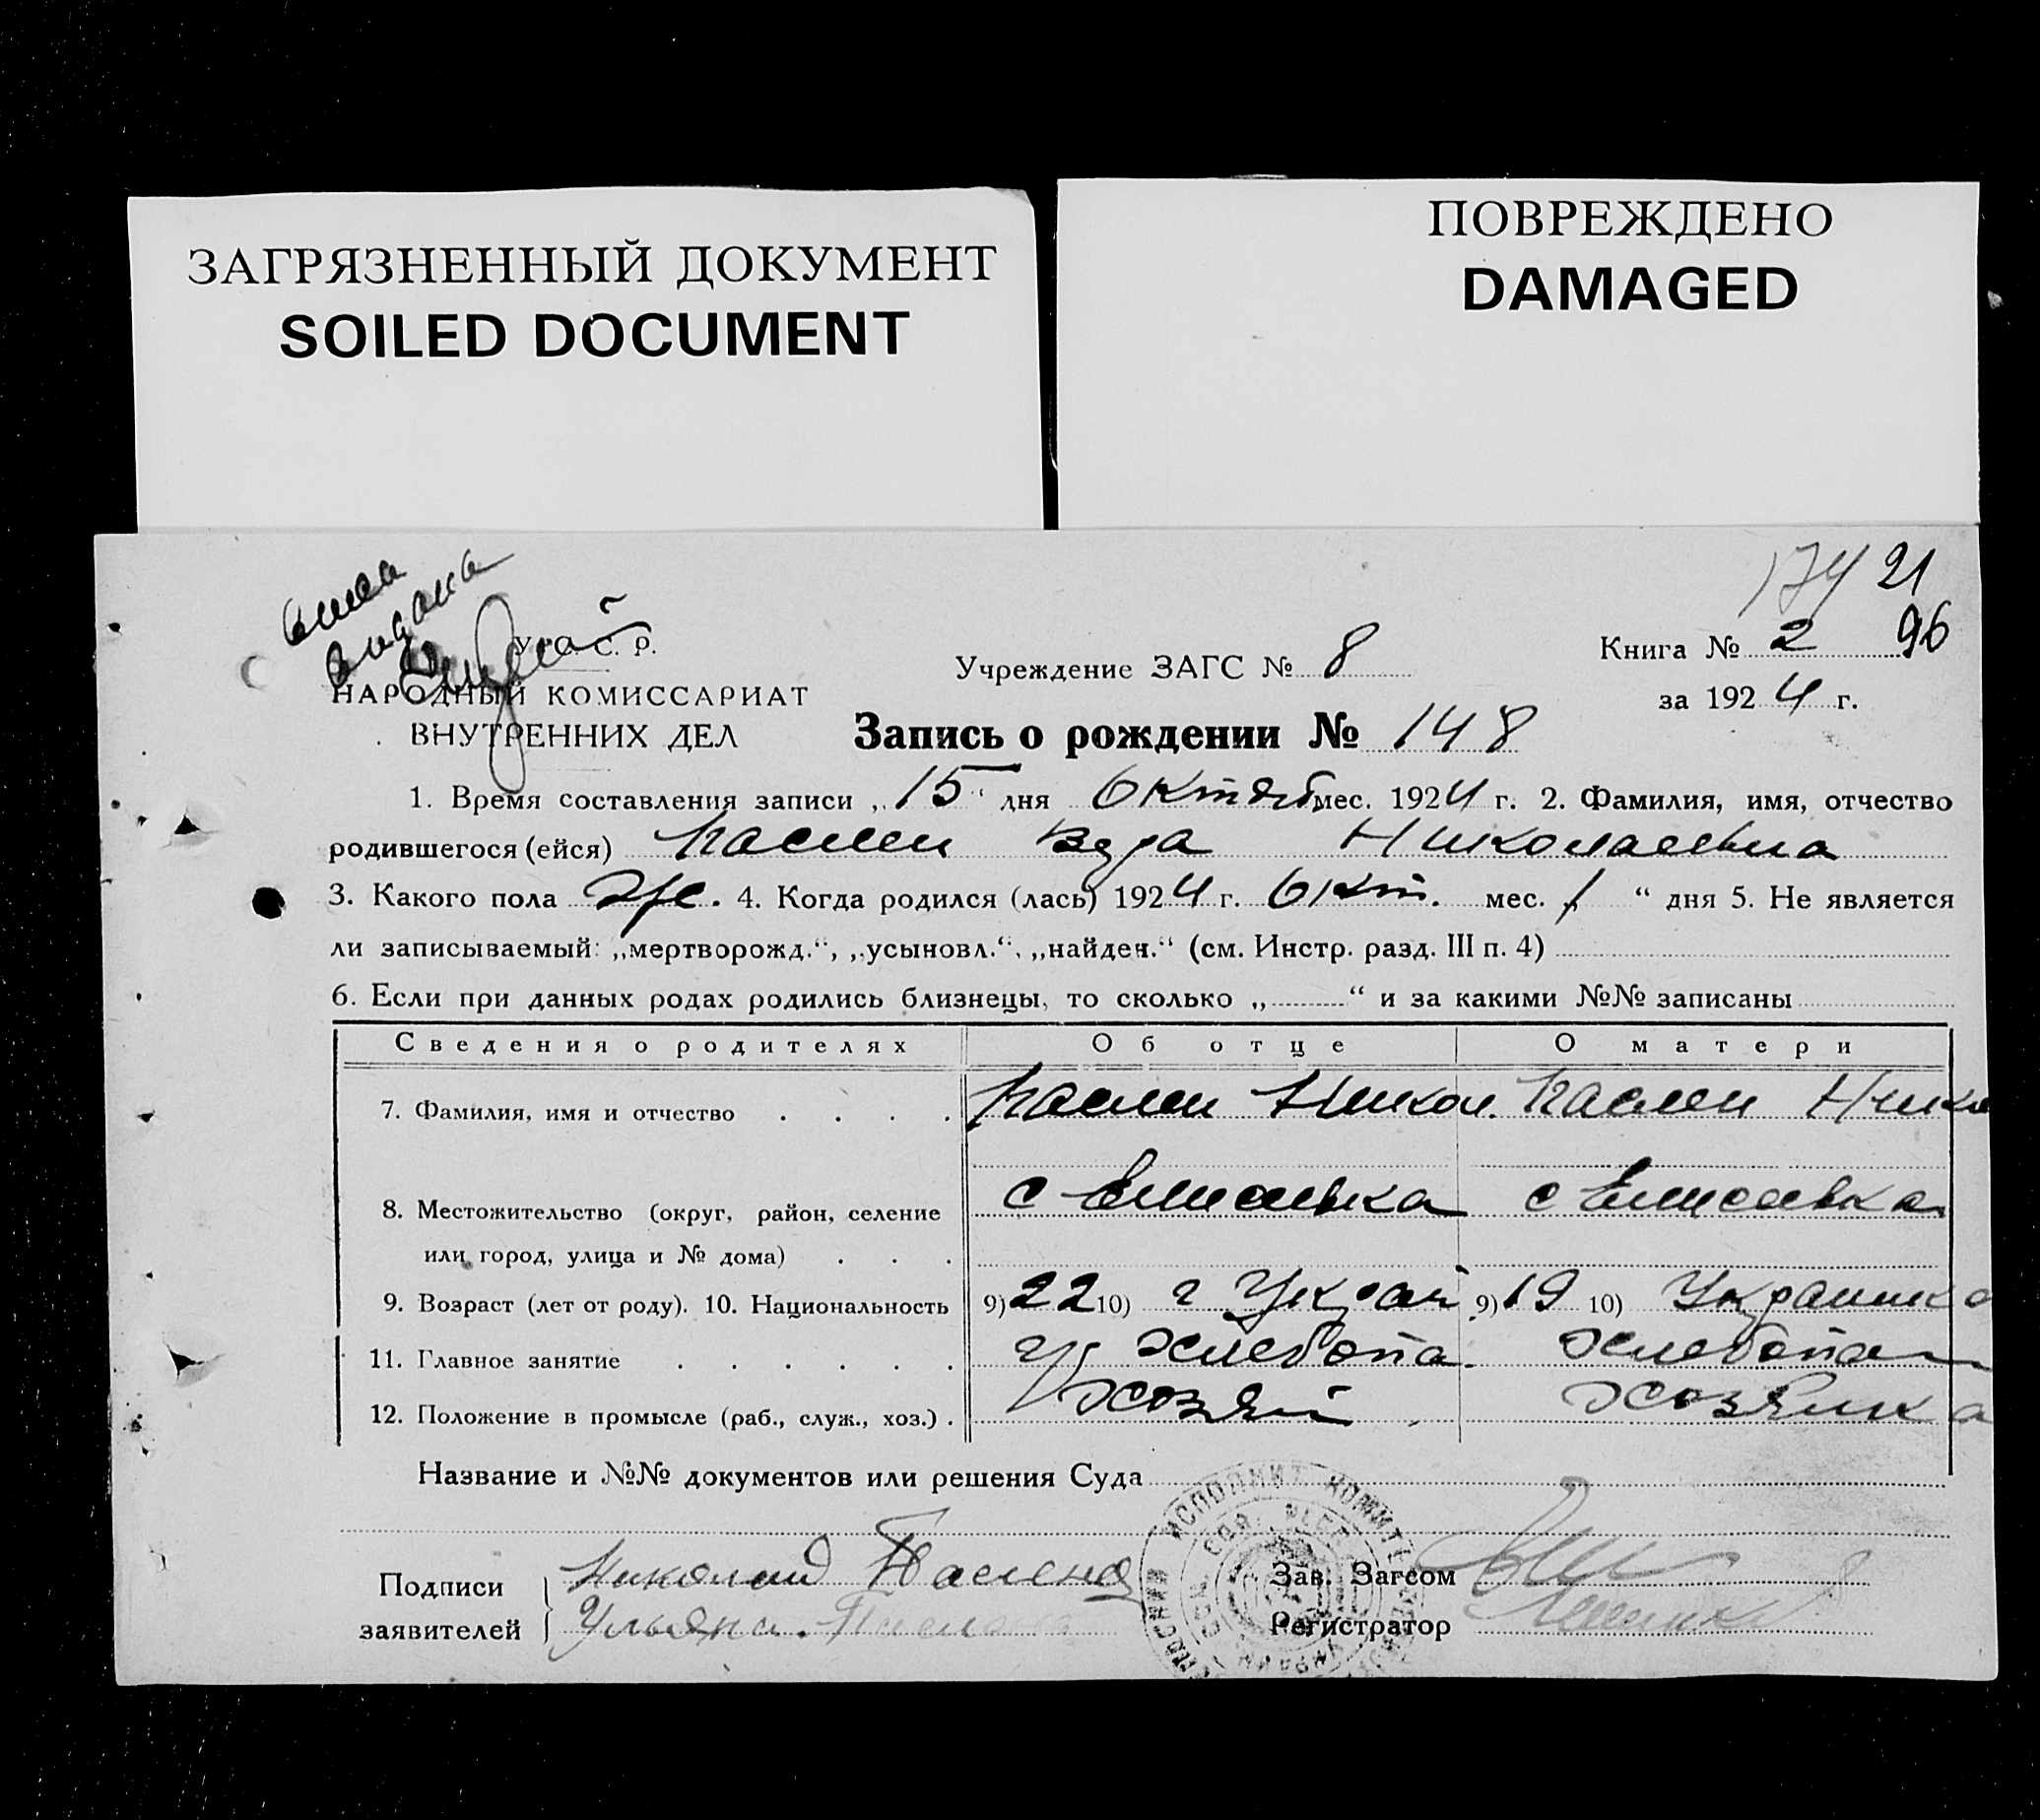 ЗАГРЯЗНЕННЫЙ ДОКУМЕНТ
SOILED DOCUMENT
ПОВРЕЖДЕНО
DAMAGED
21
96
У. С. С. Р.
НАРОДНЫЙ КОМИССАРИАТ
ВНУТРЕННИХ ДЕЛ
Учреждение ЗАГС № 8
Книга № 2
за 1924 г.
Запись о рождении № 148
1. Время составления записи „15“ дня Октяб мес. 1924 г. 2. Фамилия, имя, отчество
родившегося (ейся) Николаевна
3. Какого пола же. 4. Когда родился (лась) 1924 г. Окт. мес. „1“ дня 5. Не является
ли записываемый: „мертворожд.“, „усыновл.“, „найден.“ (см. Инстр. разд. III п. 4)
6. Если при данных родах родились близнецы, то сколько „ “ и за какими №№ записаны
Сведения о родителях Об отце О матери
7. Фамилия, имя и отчество . . . . Никол. Нико
8. Местожительство (округ, район, селение с Елисеевка с Елисеевка
или город, улица и № дома) . . .
9. Возраст (лет от роду). 10. Национальность 9) 22 10) г Украи 9) 19 10) Украинка
11. Главное занятие . . . . . . хлебопа. хлебопаш
12. Положение в промысле (раб., служ., хоз.) . хозяй хозяйка
Название и №№ документов или решения Суда
Подписи Николай
заявителей Ульяна
Зав. Загсом
Регистратор